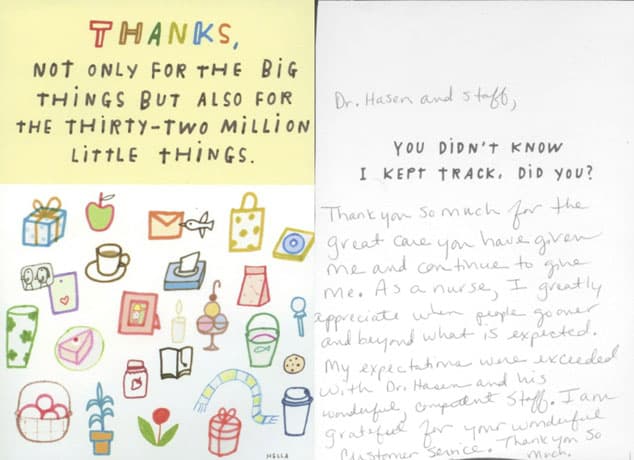 THANKS,
NOT ONLY FOR THE BIG
THINGS BUT ALSO FOR
THE THIRTY-TWO MILLION
LITTLE THINGS.
HELLA
Dr. Hasen and staff,
YOU DIDN'T KNOW
I KEPT TRACK, DID YOU?
Thank you so much for the
great care you have given
me and continue to give
me. As a nurse, I greatly
appreciate when people go over
and beyond what is expected.
My expectations were exceeded
with Dr. Hasen and his
wonderful, competent staff. I am
grateful for your wonderful
Customer Service. Thank you so
much.